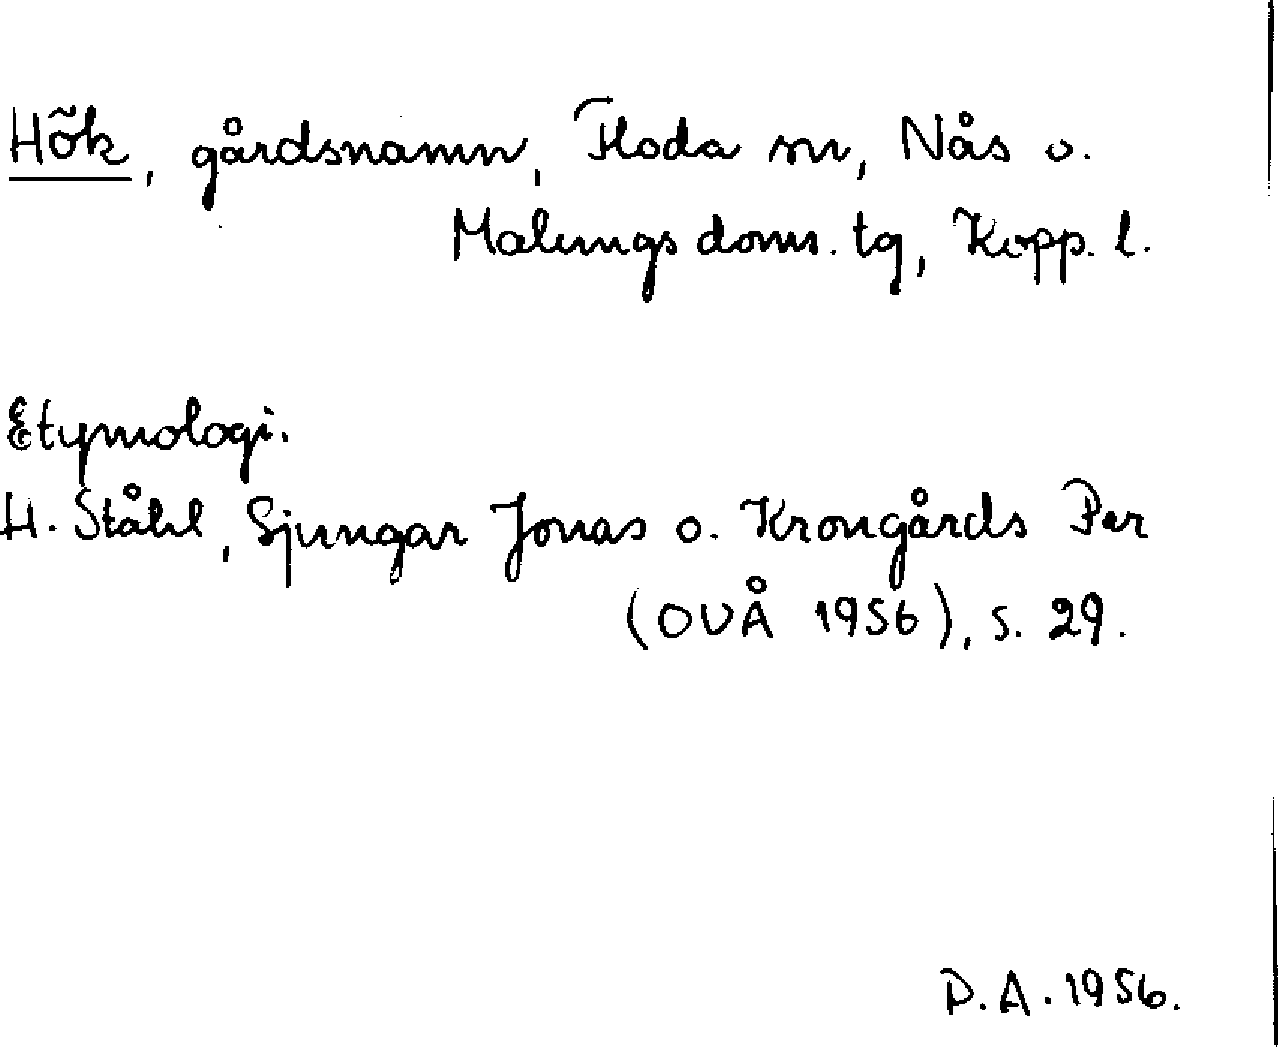 Hök, gårdsnamn, Floda sn, Nås o.
Malungs doms. tg, Kopp. l.
Etymologi.
H. Ståhl, Sjungar Jonas o. Krongårds Per
(OUÅ 1956), s. 29.
D.A. 1956.